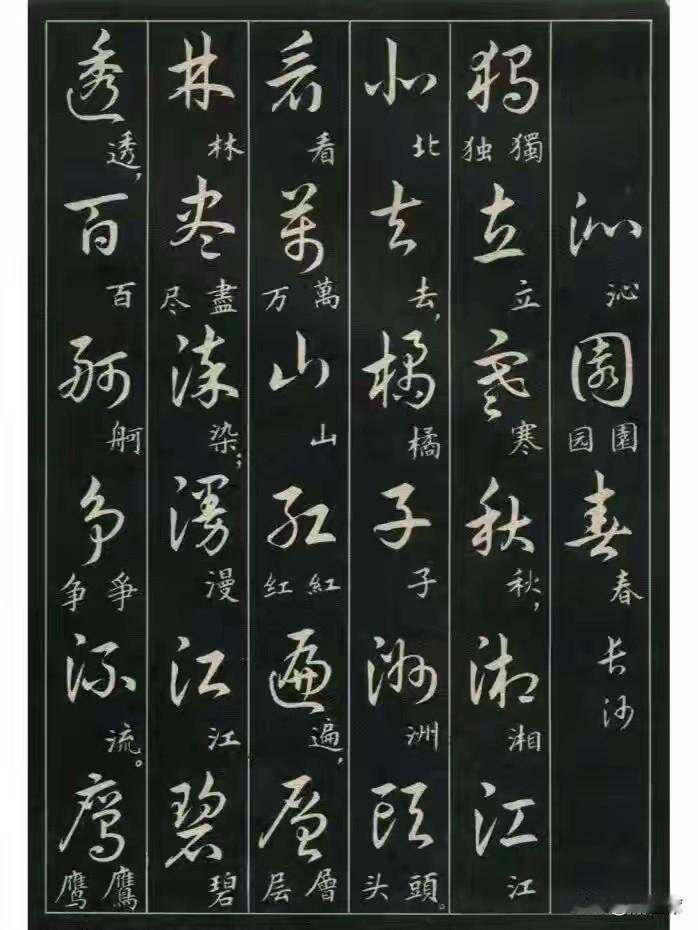 沁園春
沁 園园 春 长沙
獨立寒秋湘江
獨独 立 寒 秋， 湘 江
北去橘子洲頭
北 去， 橘 子 洲 頭头。
看萬山紅遍層
看 萬万 山 紅红 遍， 層层
林盡染漫江碧
林 盡尽 染； 漫 江 碧
透百舸爭流鷹
透， 百 舸 爭争 流。 鷹鹰